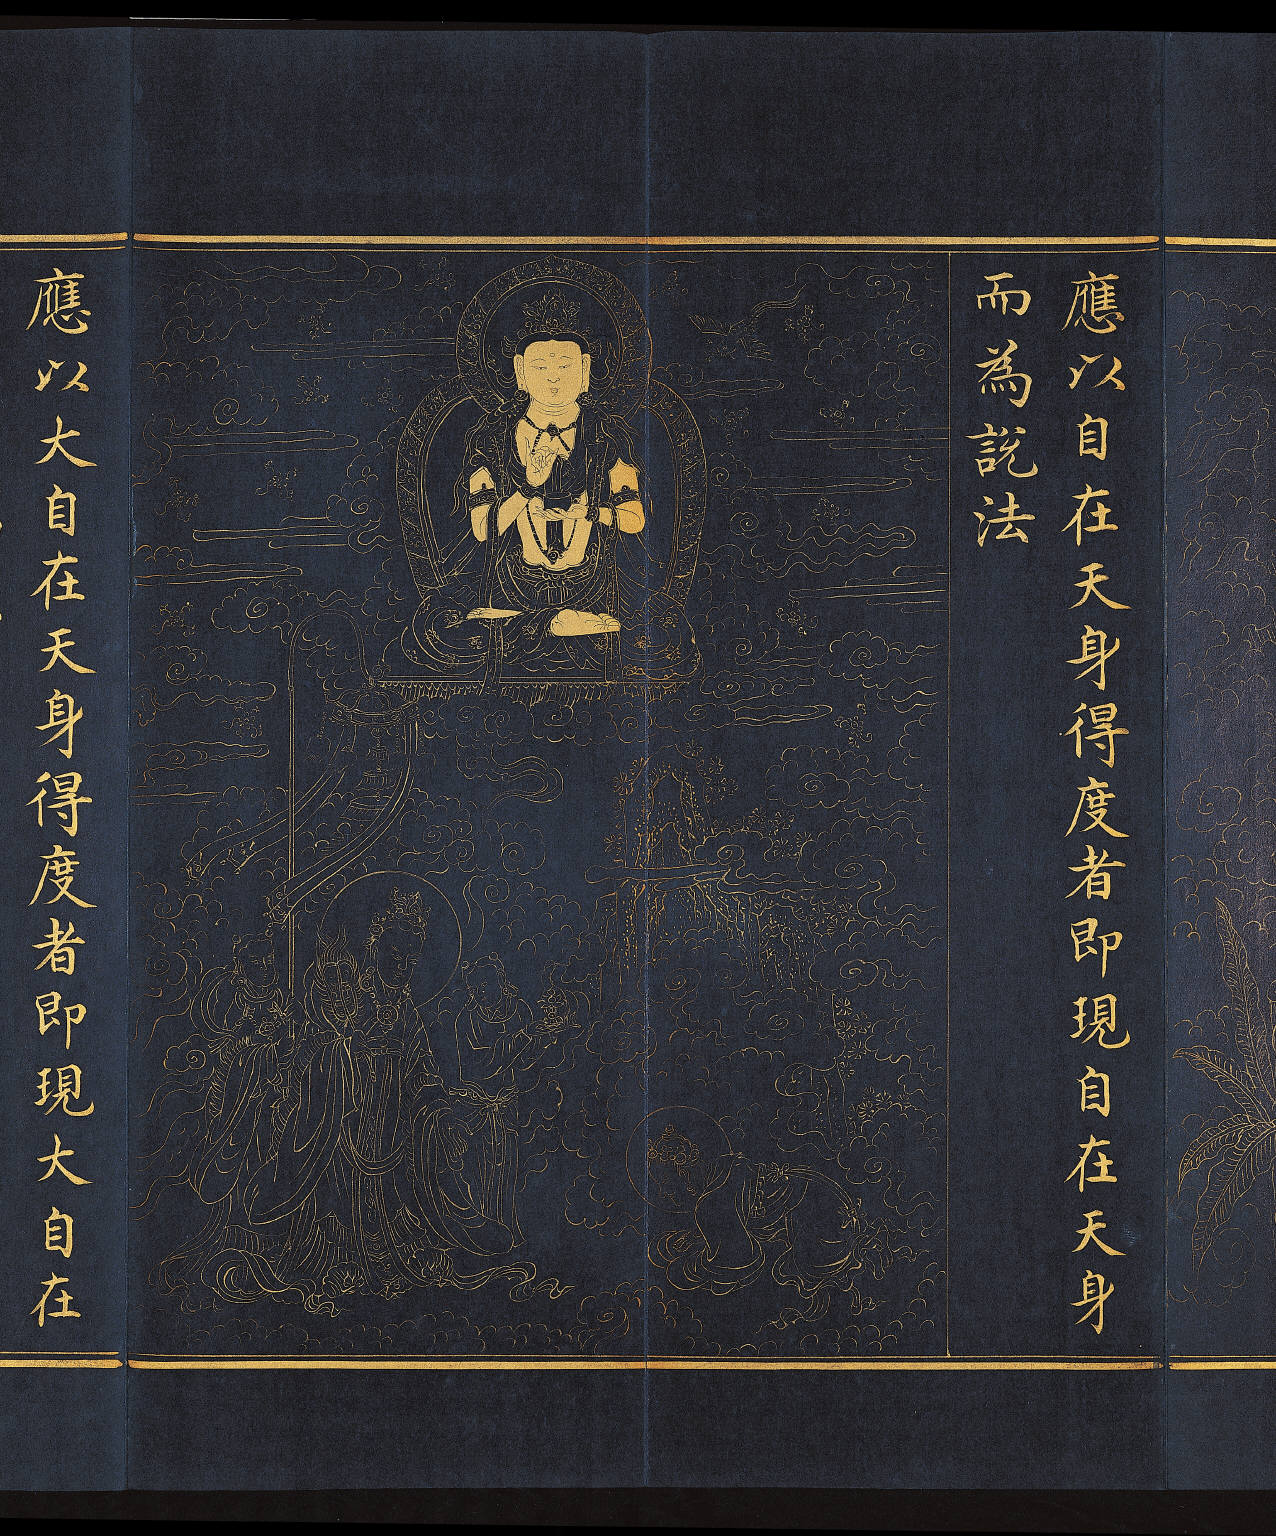 應以自在天身得度者即現自在天身
而為說法
應以大自在天身得度者即現大自在